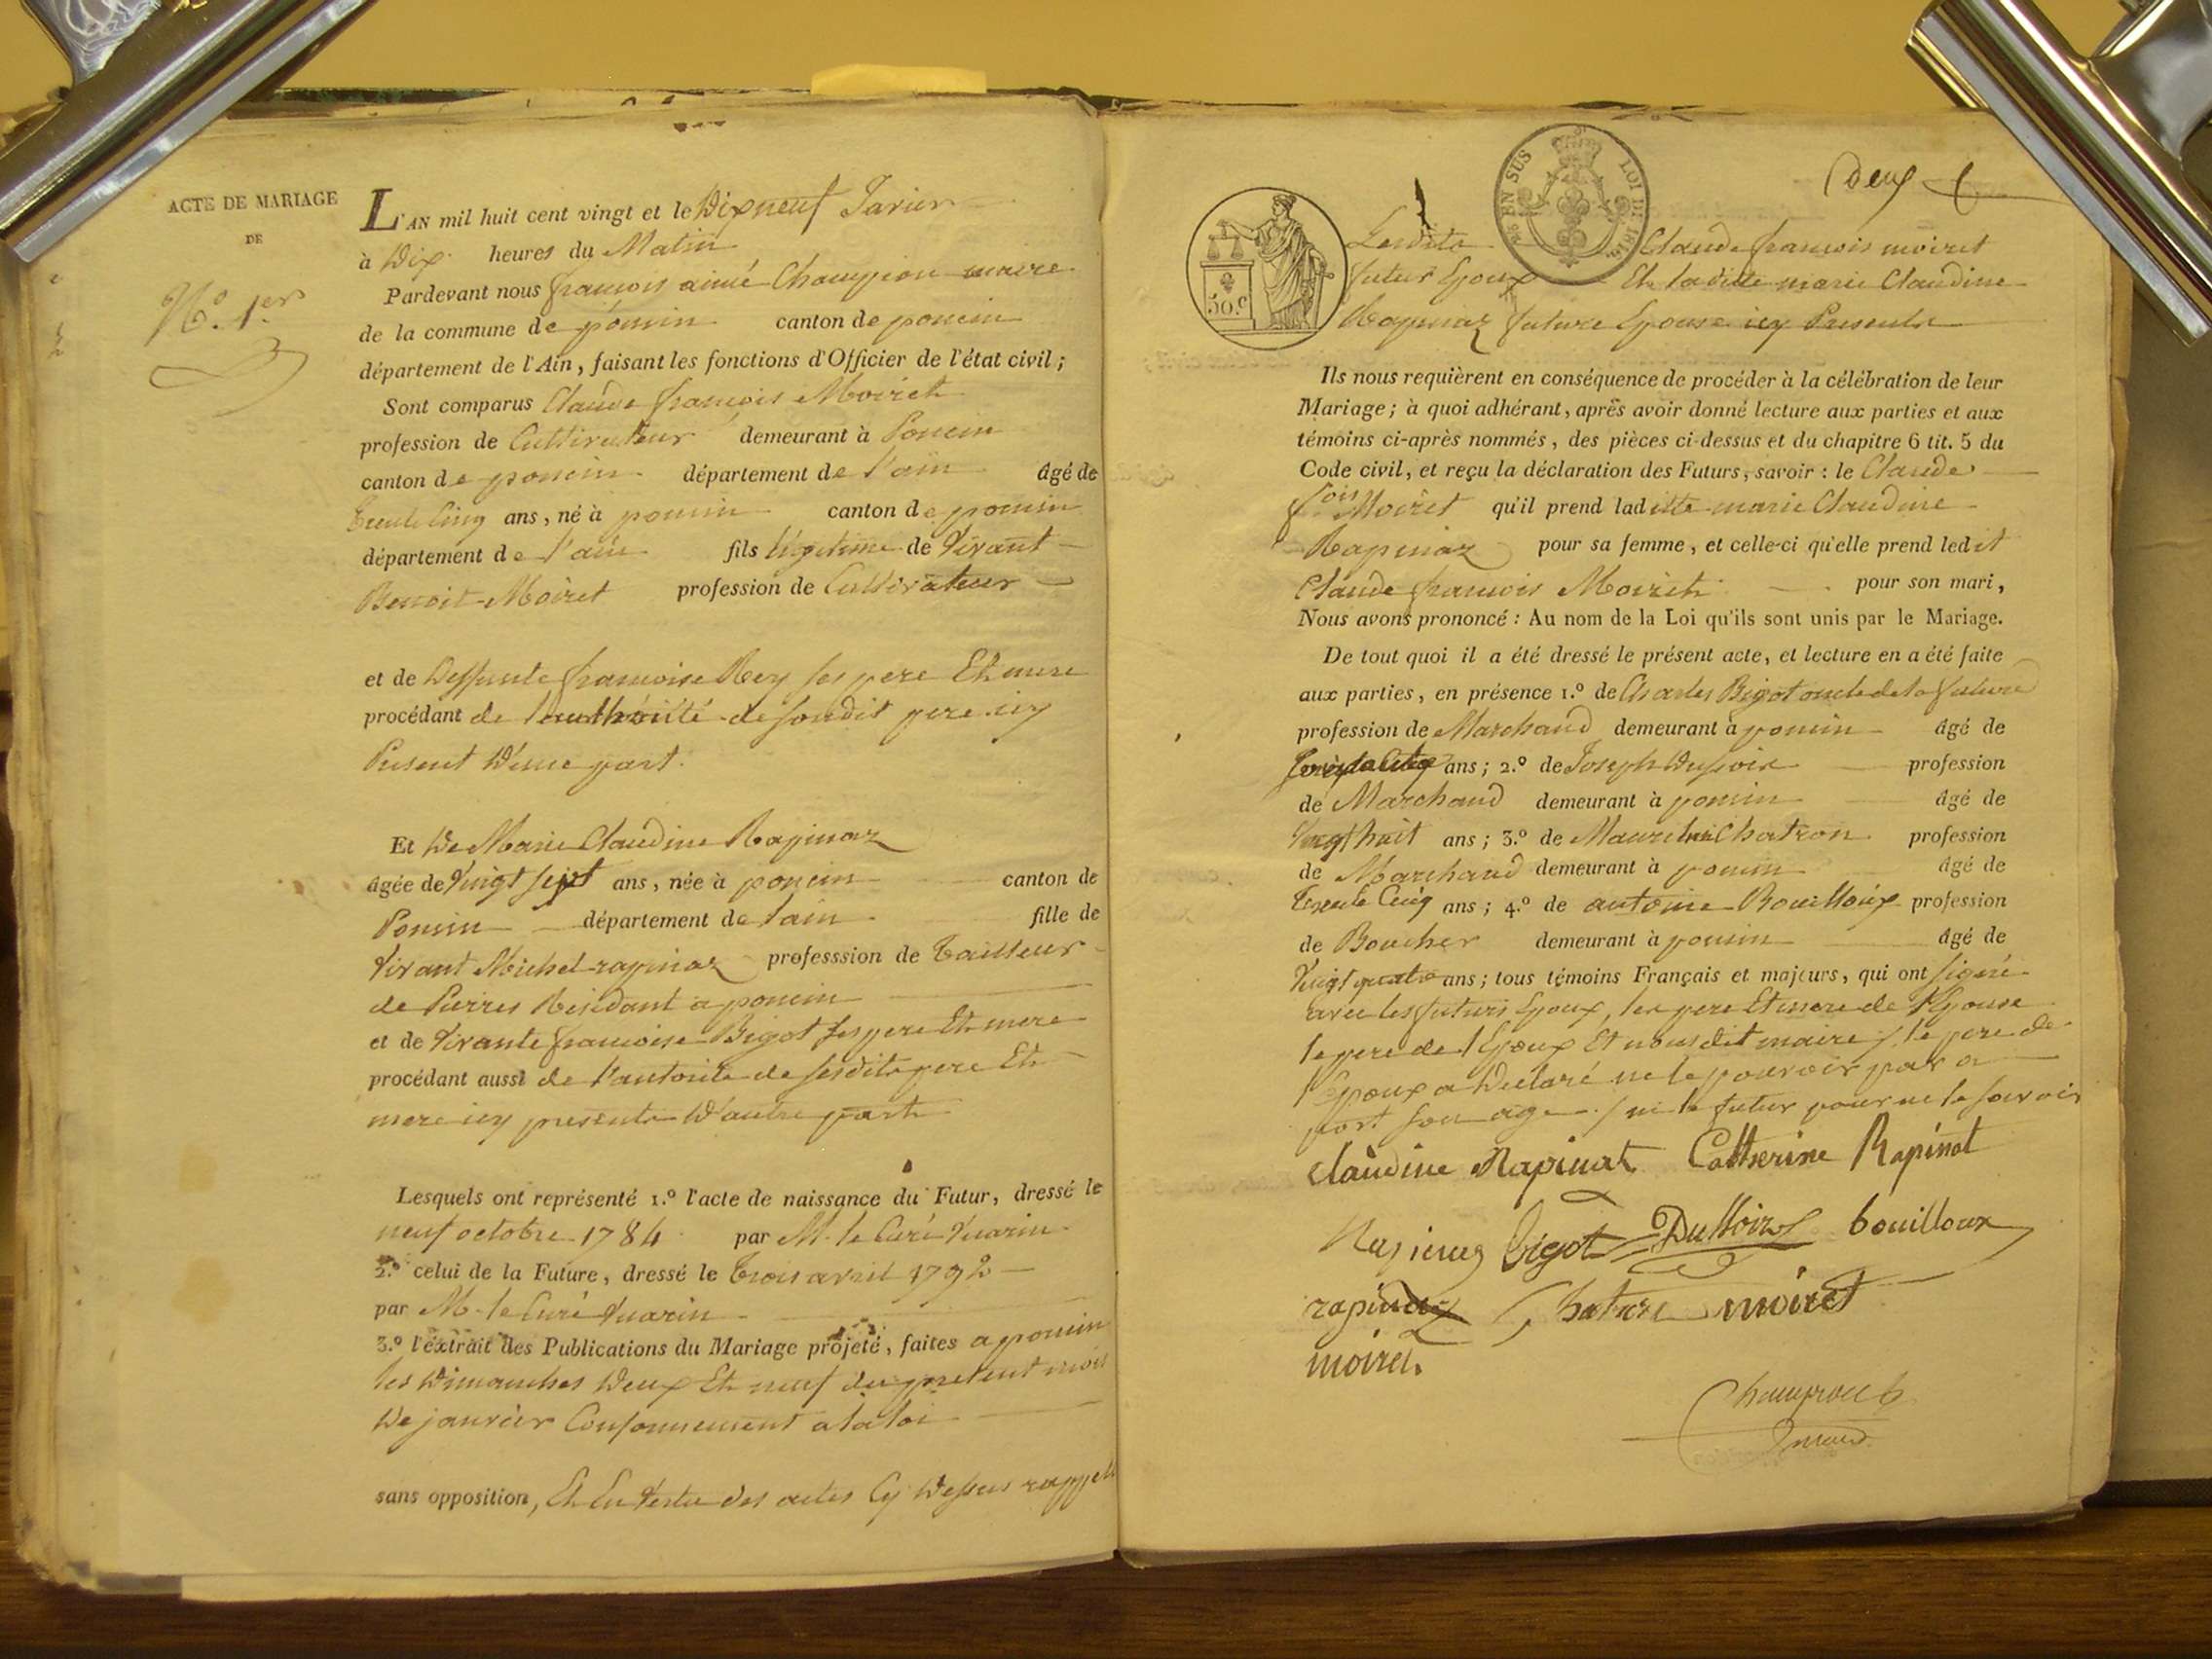 ACTE DE MARIAGE
DE
N.º 1.er
L'AN mil huit cent vingt et le Dix neuf Janvier
à Dix heures du Matin
Pardevant nous françois aimé Champion maire
de la commune de poncin canton de poncin
département de l'Ain, faisant les fonctions d'Officier de l'état civil ;
Sont comparus Claude françois Moiret
profession de Cultivateur demeurant à Poncin
canton de poncin département de l'ain âgé de
trente Cinq ans, né à poncin canton de poncin
département de l'ain fils légitime de Vivant
Benoit Moiret profession de Cultivateur
et de Deffunte françoise Rey ses pere Et mere
procédant de l'authorité de sondit pere icy
Present D'une part.
Et De Marie Claudine Rapinaz
âgée de Vingt sept ans, née à poncin canton de
Poncin département de Lain fille de
Vivant Michel rapinaz professsion de Tailleur
de Pierres Residant a poncin
et de Vivante françoise Bigot ses pere Et mere
procédant aussi de l'autorité de sesdits pere Et
mere icy presents D'autre part
Lesquels ont représenté 1.º l'acte de naissance du Futur, dressé le
neuf octobre 1784 par M. le Curé Vuarin
2.º celui de la Future, dressé le trois avril 1792
par M. le Curé Vuarin
3.º l'extrait des Publications du Mariage projeté, faites a poncin
les Dimanches Deux Et neuf du present mois
De janvier Conformement a la loi
sans opposition, Et En Vertu des actes Cy Dessus rappelés
Deux
BN SUS LOI DE 1816
50.c
Lesdits Claude françois moiret
futur Epoux Et ladite marie Claudine
Rapinaz future Epouse icy Presents
Ils nous requièrent en conséquence de procéder à la célébration de leur
Mariage ; à quoi adhérant, après avoir donné lecture aux parties et aux
témoins ci-après nommés, des pièces ci-dessus et du chapitre 6 tit. 5 du
Code civil, et reçu la déclaration des Futurs, savoir : le Claude
fois Moiret qu'il prend laditte marie Claudine
Rapinaz pour sa femme, et celle-ci qu'elle prend ledit
Claude françois Moiret pour son mari,
Nous avons prononcé : Au nom de la Loi qu'ils sont unis par le Mariage.
De tout quoi il a été dressé le présent acte, et lecture en a été faite
aux parties, en présence 1.º de Charles Bigot oncle de la future
profession de Marchand demeurant à poncin âgé de
ans ; 2.º de Joseph profession
de Marchand demeurant à poncin âgé de
Vingt huit ans ; 3.º de Chatron profession
de Marchand demeurant à poncin âgé de
Trente Cinq ans ; 4.º de antoine Bouilloux profession
de Boucher demeurant à poncin âgé de
Vingt quatre ans ; tous témoins Français et majeurs, qui ont signé
avec les futurs Epoux, les pere Et mere de l'Epouse
le pere de l'Epoux Et nousdit maire / le pere de
l'Epoux a Declaré ne le pouvoir par a
port son age / ni le futur pour ne le savoir
claudine Rapinaz Catherine Rapinat
bigot Dussoir bouilloux
rapinaz Chatron moiret
moiret
Champion
maire